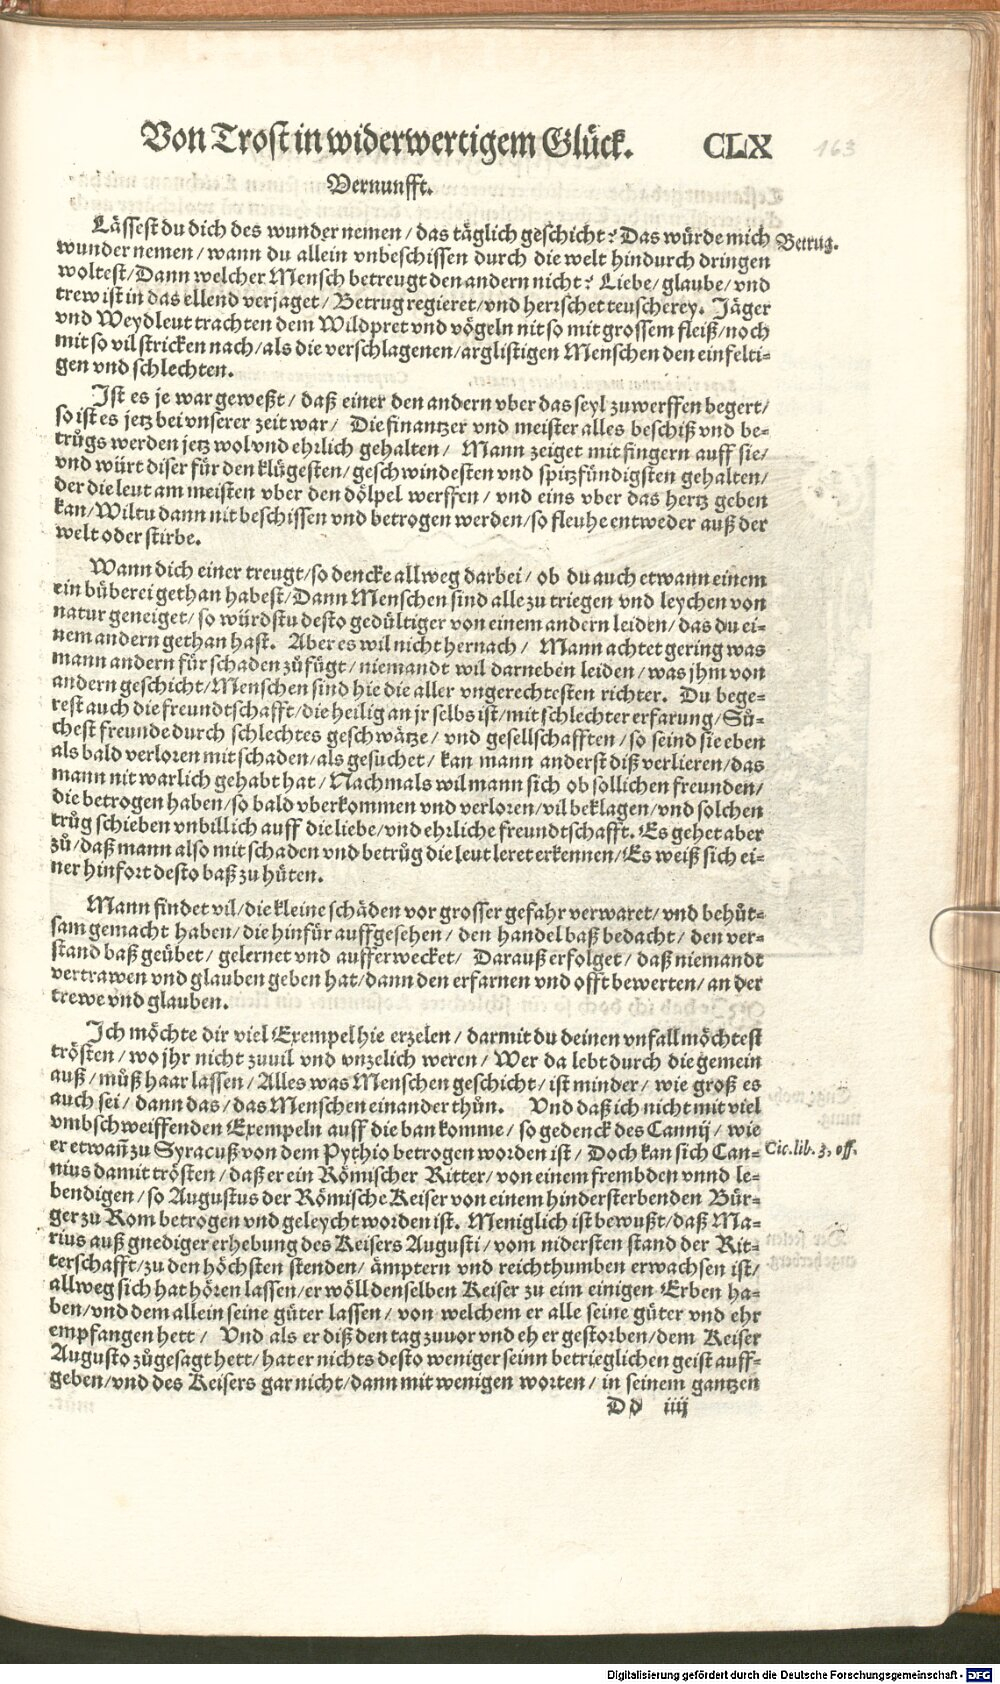 Von Trost in widerwertigem Glück. CLX
163
Vernunfft.
Lässest du dich des wunder nemen / das täglich geschicht? Das würde mich
Betrug.
wunder nemen / wann du allein vnbeschissen durch die welt hindurch dringen
woltest / Dann welcher Mensch betreugt den andern nicht? Liebe / glaube / vnd
trew ist in das ellend verjaget / Betrug regieret / vnd herrschet teuscherey. Jäger
vnd Weydleut trachten dem Wildpret vnd vögeln nit so mit grossem fleiß / noch
mit so vil stricken nach / als die verschlagenen / arglistigen Menschen den einfelti-
gen vnd schlechten.
Ist es je war geweßt / daß einer den andern vber das seyl zuwerffen begert /
so ist es jetz bei vnserer zeit war / Die finantzer vnd meister alles beschiß vnd be-
trůgs werden jetz wol vnd ehrlich gehalten / Mann zeiget mit fingern auff sie /
vnd würt diser für den klügesten / geschwindesten vnd spitzfündigsten gehalten /
der die leut am meisten vber den dölpel werffen / vnd eins vber das hertz geben
kan / Wiltu dann nit beschissen vnd betrogen werden / so fleuhe entweder auß der
welt oder stirbe.
Wann dich einer treugt / so dencke allweg darbei / ob du auch etwann einem
ein büberei gethan habest / Dann Menschen sind alle zu triegen vnd leychen von
natur geneiget / so würdstu desto gedültiger von einem andern leiden / das du ei-
nem andern gethan hast. Aber es wil nicht hernach / Mann achtet gering was
mann andern für schaden zůfügt / niemandt wil darneben leiden / was jhm von
andern geschicht / Menschen sind hie die aller vngerechtesten richter. Du bege-
rest auch die freundtschafft / die heilig an jr selbs ist / mit schlechter erfarung / Sů-
chest freunde durch schlechtes geschwätze / vnd gesellschafften / so seind sie eben
als bald verloren mit schaden / als gesuchet / kan mann anderst diß verlieren / das
mann nit warlich gehabt hat / Nachmals wil mann sich ob sollichen freunden /
die betrogen haben / so bald vberkommen vnd verloren / vil beklagen / vnd solchen
trůg schieben vnbillich auff die liebe / vnd ehrliche freundtschafft. Es gehet aber
zů / daß mann also mit schaden vnd betrůg die leut leret erkennen / Es weiß sich ei-
ner hinfort desto baß zu hüten.
Mann findet vil / die kleine schäden vor grosser gefahr verwaret / vnd behůt-
sam gemacht haben / die hinfür auffgesehen / den handel baß bedacht / den ver-
stand baß geübet / gelernet vnd aufferwecket / Darauß erfolget / daß niemandt
vertrawen vnd glauben geben hat / dann den erfarnen vnd offt bewerten / an der
trewe vnd glauben.
Ich möchte dir viel Exempel hie erzelen / darmit du deinen vnfall möchtest
trösten / wo jhr nicht zuuil vnd vnzelich weren / Wer da lebt durch die gemein
auß / můß haar lassen / Alles was Menschen geschicht / ist minder / wie groß es
auch sei / dann das / das Menschen einander thůn. Vnd daß ich nicht mit viel
vmbschweiffenden Exempeln auff die ban komme / so gedenck des Cannij / wie
er etwañ zu Syracuß von dem Pythio betrogen worden ist / Doch kan sich Can-
Cic. lib. 3. off.
nius damit trösten / daß er ein Römischer Ritter / von einem frembden vnnd le-
bendigen / so Augustus der Römische Keiser von einem hindersterbenden Bür-
ger zu Rom betrogen vnd geleycht worden ist. Meniglich ist bewußt / daß Ma-
rius auß gnediger erhebung des Keisers Augusti / vom nidersten stand der Rit-
terschafft / zu den höchsten stenden / ämptern vnd reichthumben erwachsen ist /
allweg sich hat hören lassen / er wöll denselben Keiser zu eim einigen Erben ha-
ben / vnd dem allein seine güter lassen / von welchem er alle seine güter vnd ehr
empfangen hett / Vnd als er diß den tag zuuor vnd eh er gestorben / dem Keiser
Augusto zůgesagt hett / hat er nichts desto weniger seinn betrieglichen geist auff-
geben / vnd des Keisers gar nicht / dann mit wenigen worten / in seinem gantzen
Dd iiij
Digitalisierung gefördert durch die Deutsche Forschungsgemeinschaft - DFG